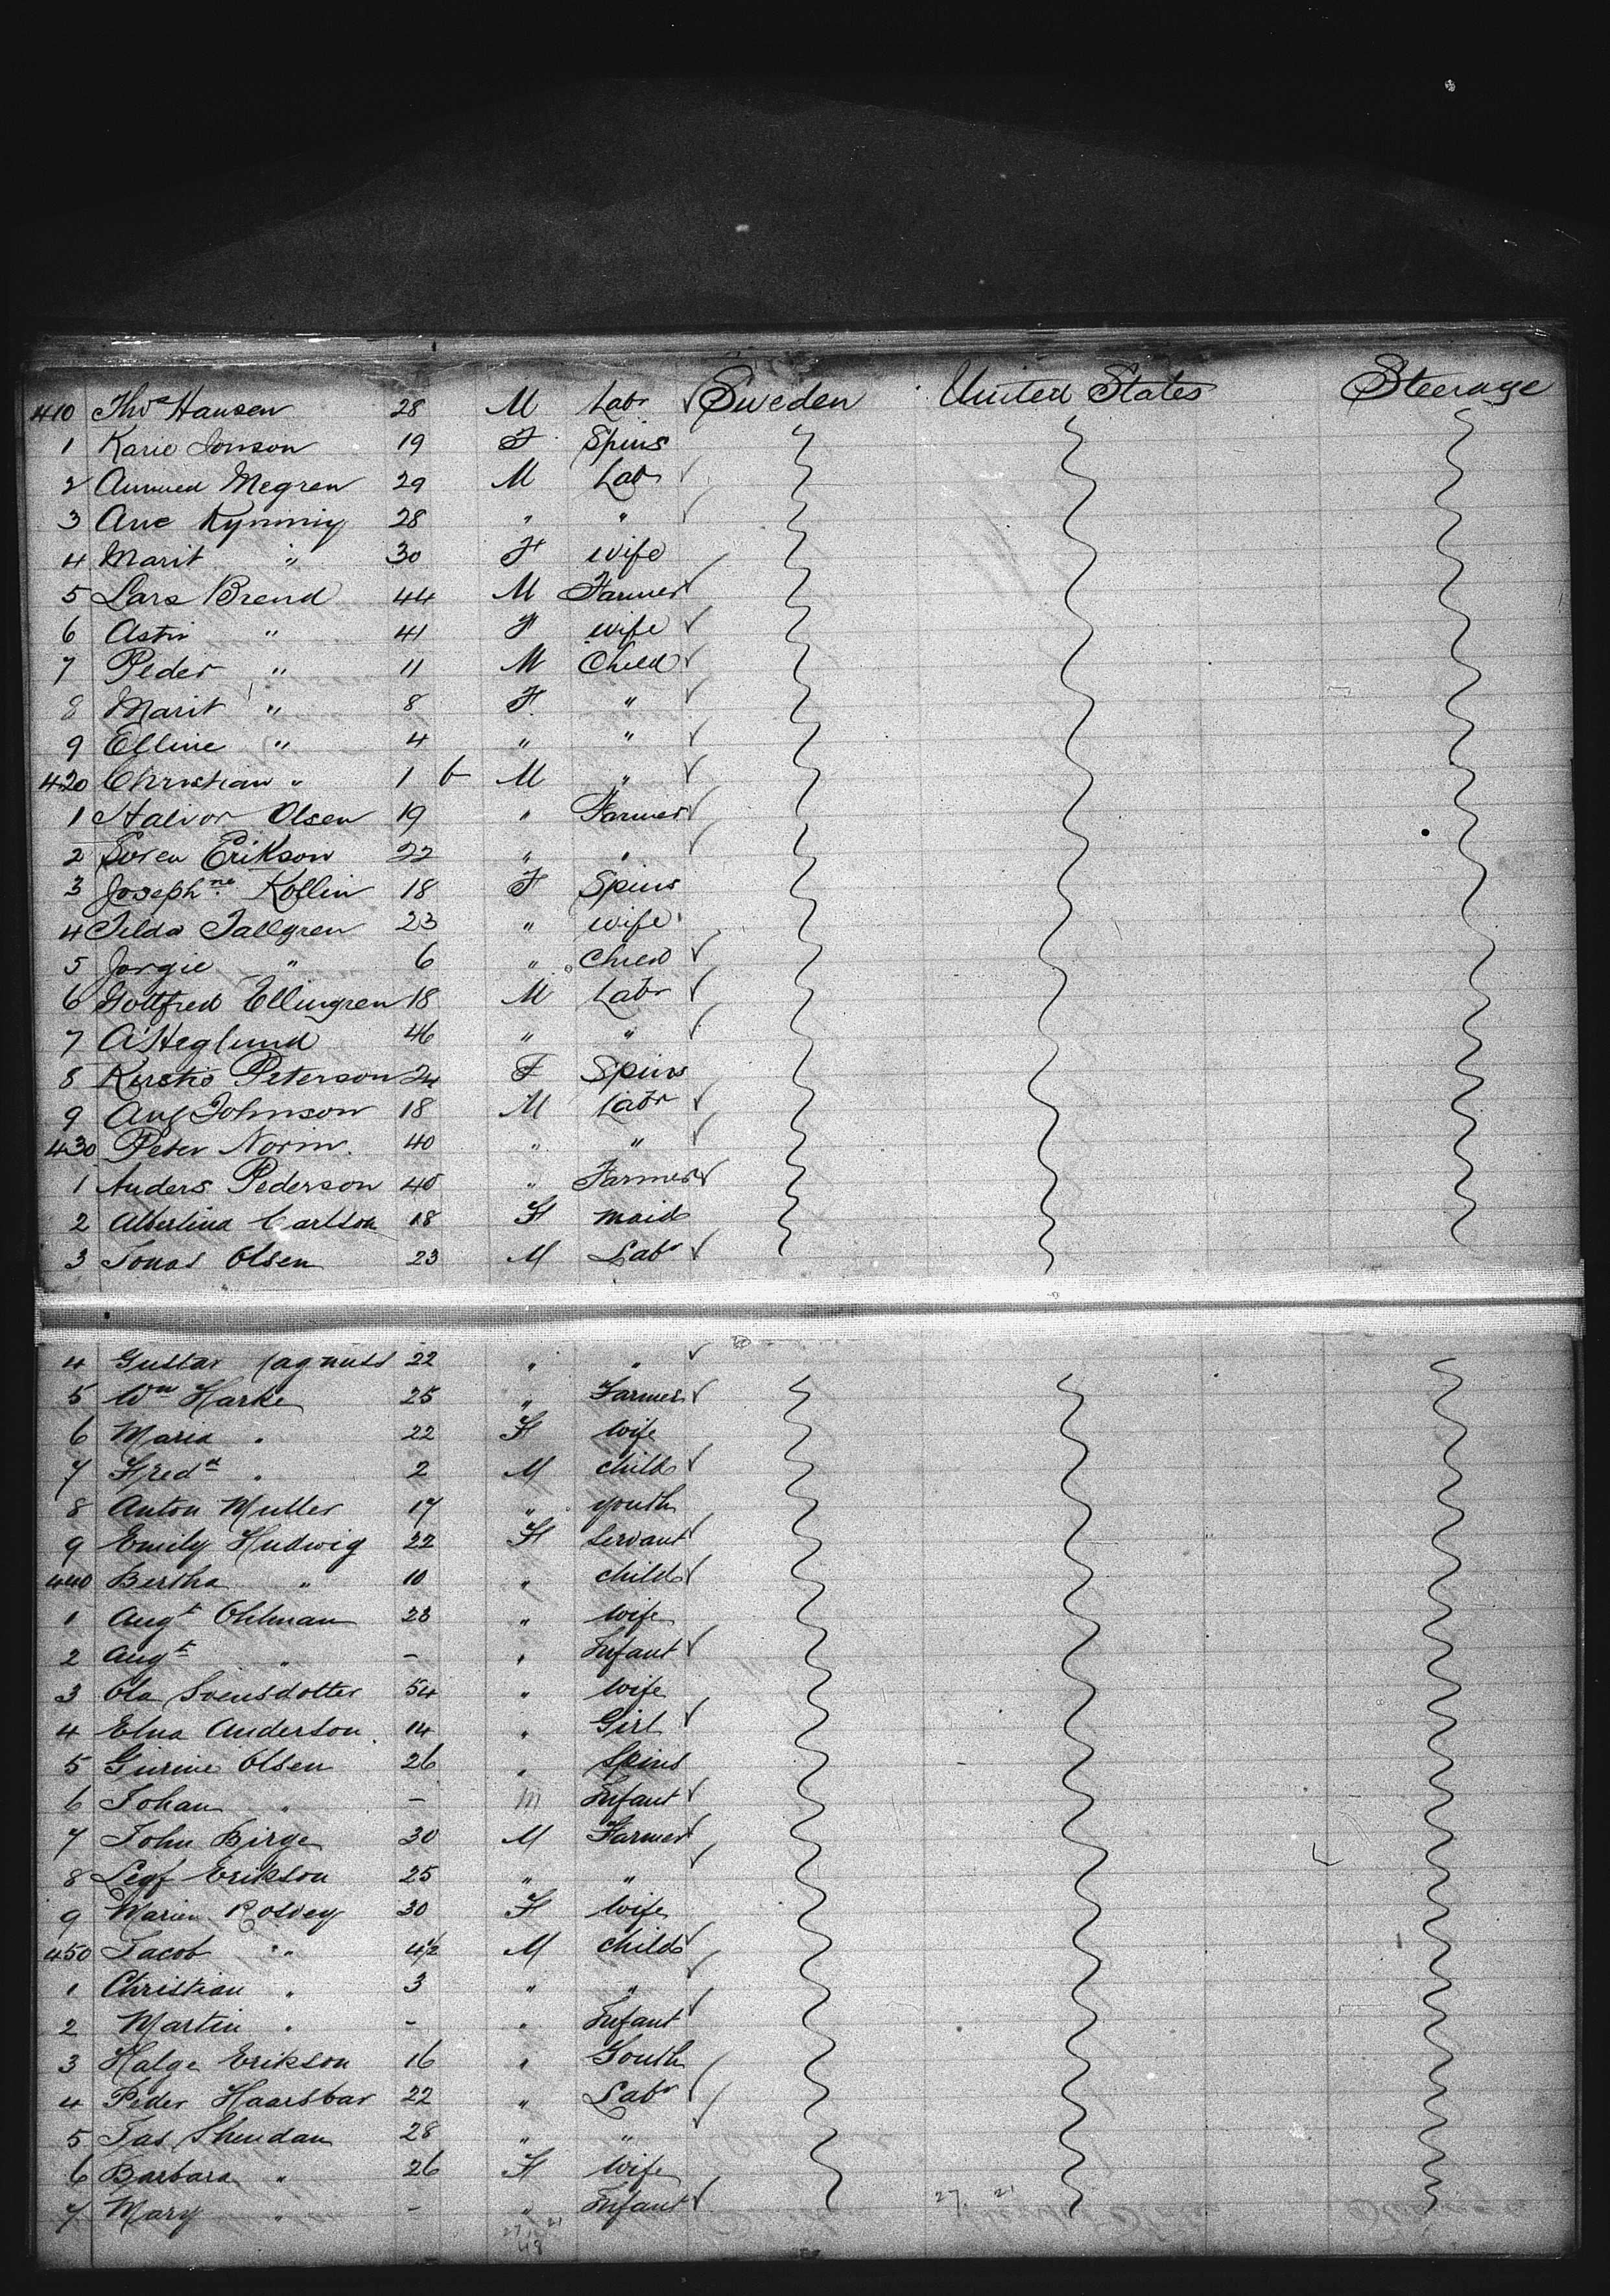 410 Thos Hansen 28 M Labr Sweden United States Steerage
1 Karie Jonson 19 F Spins
2 Megren 29 M Labr
3 Arve 28 " "
4 Marit " 30 F Wife
5 Lars Brend 44 M Farmer
6 Astri " 41 F Wife
7 Peder " 11 M Child
8 Marit " 8 F "
9 Elline " 4 " "
420 Christian " 1 6 M "
1 Halvor Olsen 19 " Farmer
2 Soren Erikson 22 " "
3 Josephne Kollin 18 F Spins
4 Tilda Tallgren 23 " Wife
5 Jorgie " 6 " Child
6 Gottfred Ellingren 18 M Labr
7 A Heglund 46 " "
8 Kerstis Peterson 24 F Spins
9 Aug Johnson 18 M Labr
430 Peter Norin 40 " "
1 Anders Pederson 45 " Farmer
2 Albertina Carlson 18 F Maid
3 Jonas Olsen 23 M Labr
4 Gustav 22 " "
5 Wm Harke 25 " Farmer
6 Maria " 22 F Wife
7 Fredk " 2 M Child
8 Anton Muller 17 " Youth
9 Emily Hudwig 22 F Servant
440 Bertha " 10 " Child
1 Augt Ohlman 23 " Wife
2 Augt " - " Infant
3 Ola Svensdotter 54 " Wife
4 Elna Anderson 14 " Girl
5 Gurine Olsen 26 " Spins
6 Johan " - M Infant
7 John Birge 30 M Farmer
8 Leif Erikson 25 " "
9 Marien Rosvey 30 F Wife
450 Jacob " 4½ M Child
1 Christian " 3 " "
2 Martin " - " Infant
3 Halge Erikson 16 " Youth
4 Peder Haarsbar 22 " Labr
5 Jas Sheridan 28 " "
6 Barbara " 26 F Wife
7 Mary " - " Infant
27. 21
27 21
48